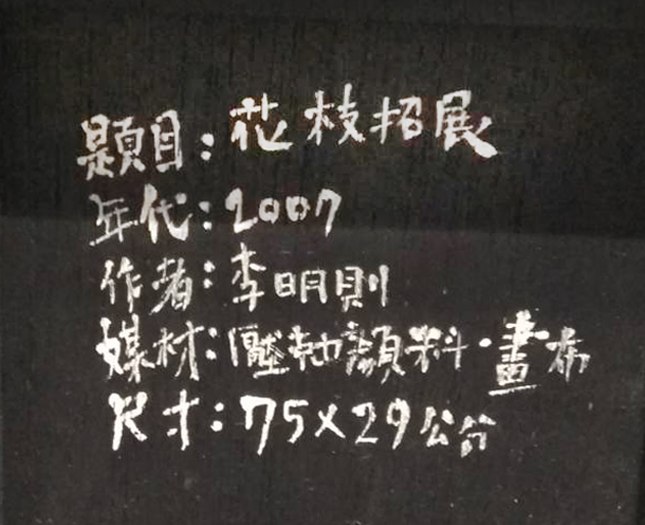 題目:花枝招展
年代:2007
作者:李明則
媒材:壓克力顏料·畫布
尺寸:75x29公分